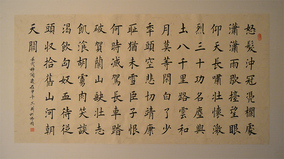 怒髮沖冠憑欄處
瀟瀟雨歇擡望眼
仰天長嘯壯懷激
烈三十功名塵與
土八千里路雲和
月莫等閒白了少
年頭空悲切靖康
耻猶未雪臣子恨
何時滅駕長車踏
破賀蘭山缺壯志
飢飡胡虜肉笑談
渴飲匈奴血待從
頭收拾舊山河朝
天闕